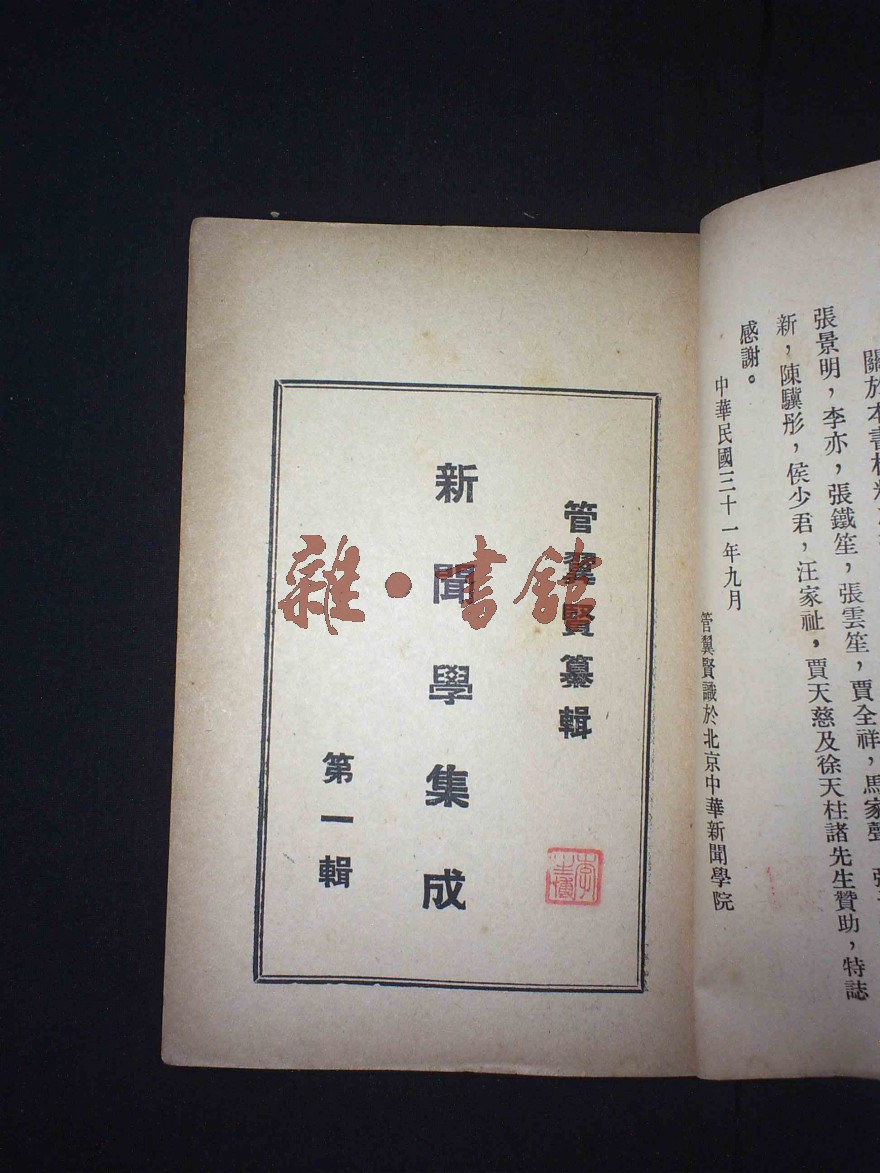 關於本書
張景明，李亦，張鐵笙，張雲笙，賈全祥，馬家聲
新，陳驥彤，侯少君，汪家祉，賈天慈及徐天柱諸先生贊助，特誌
感謝。
中華民國三十一年九月
管翼賢識於北京中華新聞學院
管翼賢纂輯
新聞學集成
第一輯
雜·書館